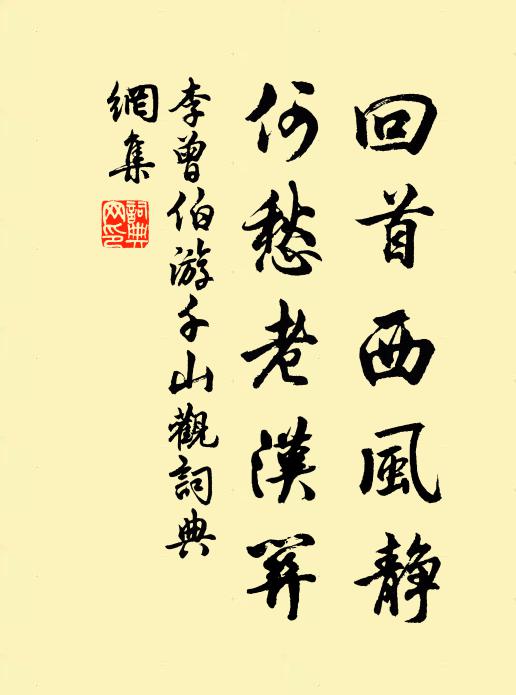 回首西風静
何愁老漢關
李曾伯游千山觀詞典
網集
詞典
网印